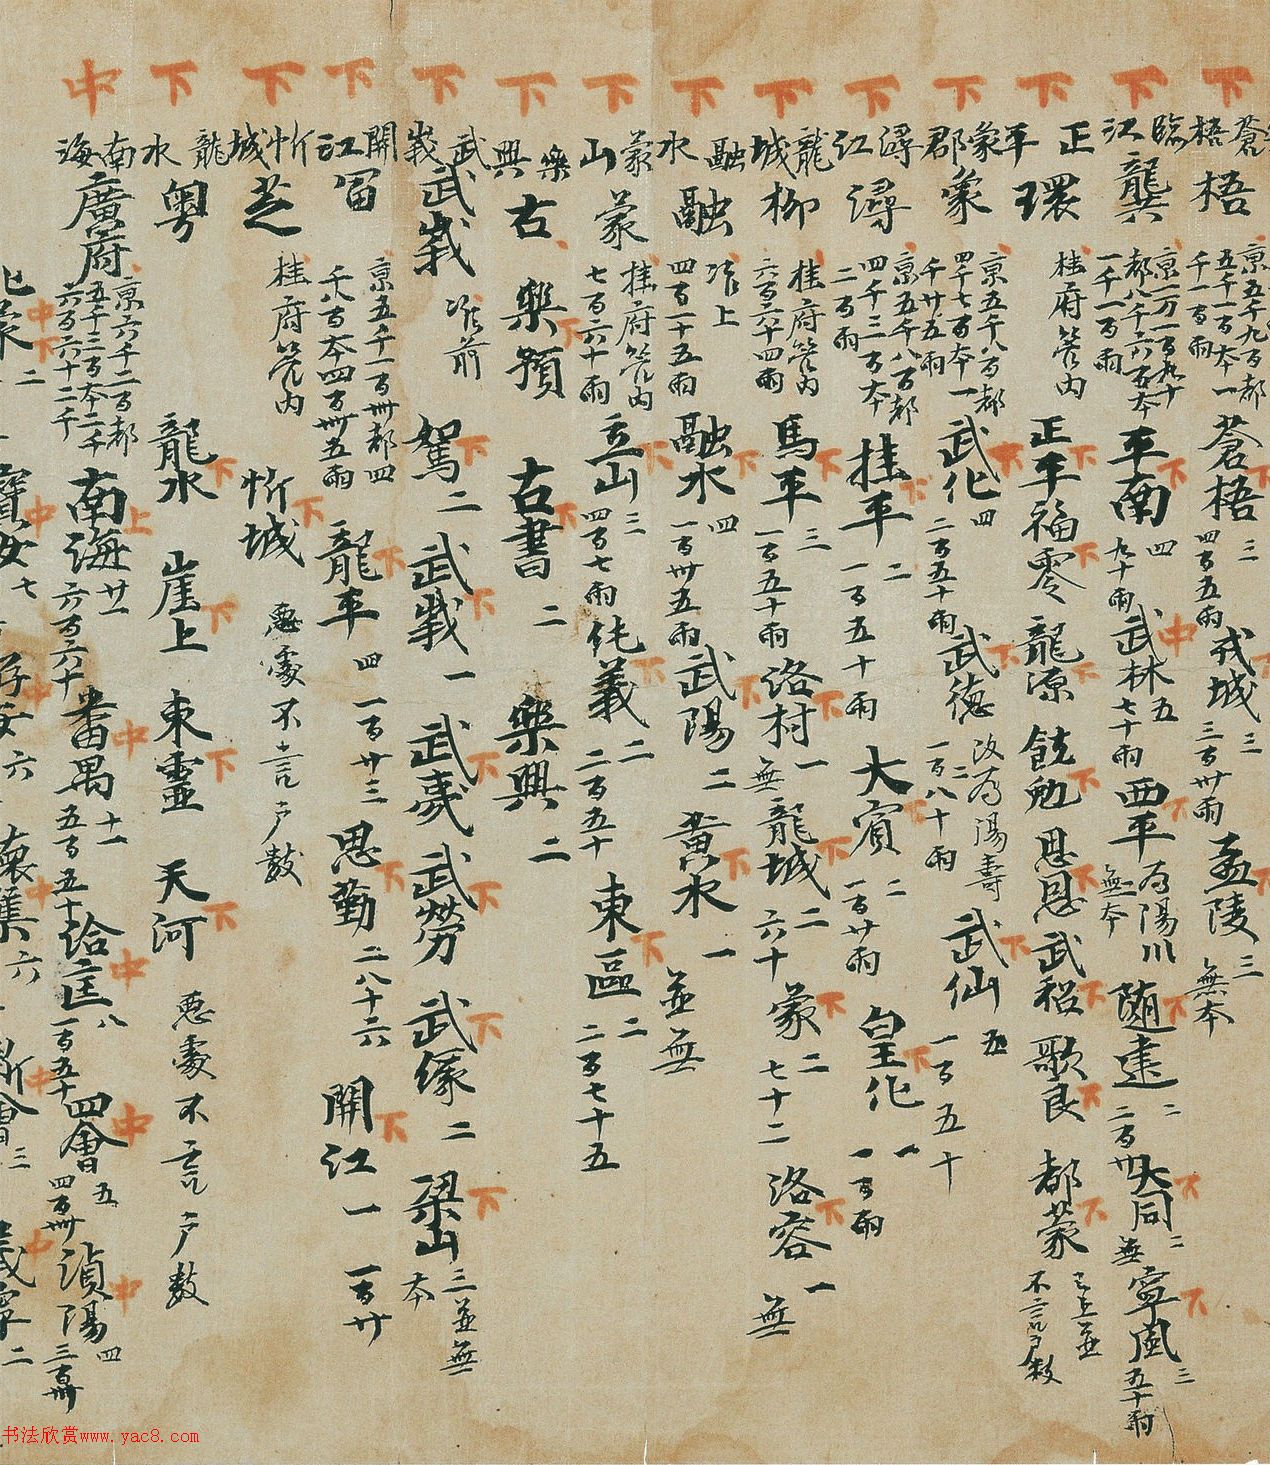 下 蒼梧 梧 京五千九百都五千一百本一千一百兩 蒼梧 下 三 四百五兩 戎城 下 三 三百卅兩 孟陵 下 三 無本
下 臨江 龔 京一万一百九十都八千六百本一千一百兩 平南 下 四 九十兩 武林 中 五 七十兩 西平 下 為陽川 無本 隨建 下 二 二百卅 大同 下 二 無 寧風 下 三 五十兩
下 正平 環 桂府管內 正平 下 福零 下 龍源 下 饒勉 下 思恩 下 武招 下 歌良 下 都蒙 下 已上並不言戶數
下 象郡 象 京五千八百都四千七百本一千廿五兩 武化 下 四 二百五十兩 武德 下 改為陽壽 二 一百八十兩 武仙 下 五 一百五十
下 潯江 潯 京五千八百都四千三百本二百兩 桂平 下 二 一百五十兩 大賓 下 二 一百廿兩 皇化 下 一 一百兩
下 龍城 柳 桂府管內 六百二十四兩 馬平 下 三 一百五十兩 洛村 下 一 無 龍城 下 二 六十 蒙 下 二 七十二 洛容 下 一 無
下 融水 融 准上 四百一十五兩 融水 下 四 一百卅五兩 武陽 下 二 黃水 下 一 並無
下 蒙山 蒙 桂府管內 七百六十兩 立山 下 三 四百七兩 純義 下 二 二百五十 東區 下 二 二百七十五
下 樂興 古 樂預 下 古書 下 二 樂興 二
下 武峩 武峩 准前 駕 下 二 武峩 下 一 武夷 下 武勞 下 武緣 下 二 梁山 下 三 並無本
下 開江 富 京五千一百卅都四千八百本四百卅五兩 龍平 下 四 一百廿三 思勤 下 二 八十六 開江 下 一 一百廿
下 忻城 芝 桂府管內 忻城 下 惡處不言戶數
下 龍水 粵 龍水 下 崖上 下 東靈 下 天河 下 惡處不言戶數
中 南海 廣府 京六千二百都五千二百本二千六百六十二千 南海 上 廿一 六百六十 番禺 中 十一 五百五十 洽洭 中 八 一百五十 四會 中 五 四百卅 湞陽 中 四 三百卅
化蒙 中下 二 寶安 中 七 中 六 懷集 中 六 新會 中 三 義寧 中 二
书法欣赏www.yac8.com